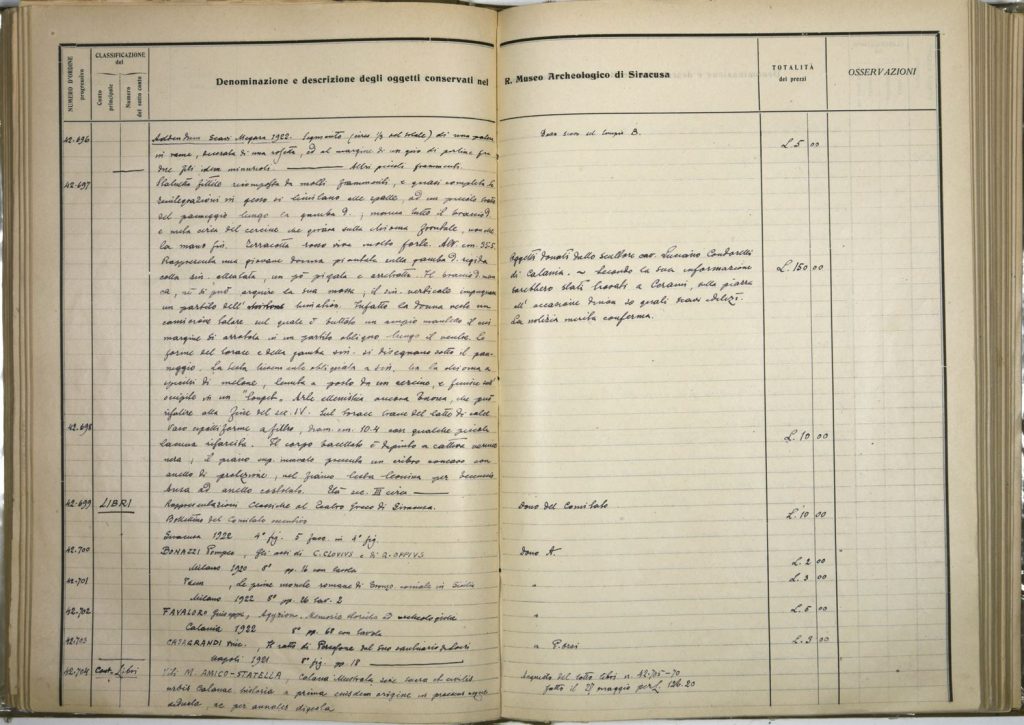 NUMERO D'ORDINE progressivo
CLASSIFICAZIONE del
Conto principale
Numero del sotto conto
Denominazione e descrizione degli oggetti conservati nel R. Museo Archeologico di Siracusa
TOTALITÀ dei prezzi
OSSERVAZIONI
42.696
Addendum Scavi Megara 1922. Segmento (circa 1/3 del totale) di una
in rame, decorata di una rosetta, ed al margine di un giro di perline fra
due fili idem minuscoli. — Altri piccoli frammenti.
B.
L. 5 00
42.697
Statuetta fittile ricomposta da molti frammenti, e quasi completa le
reintegrazioni in gesso si limitano alle spalle, ad un piccolo tratto
del panneggio lungo la gamba d.; manca tutto il braccio d.
e metà circa del cercine che girava sulla chioma frontale, non che
la mano sin. Terracotta rosso viva molto forte. Alt. cm.
Rappresenta una giovane donna piantata sulla gamba d. rigida
colla sin. allentata, un pò piegata e arretrata. Il braccio d. man
ca, nè si può arguire la sua mossa; il sin. verticale impugnava
un partito dell' himation. Infatti la donna veste un
camicione talare sul quale è buttato un ampio mantello il cui
margine di arrotola in un partito obliquo lungo il ventre. Le
forme del torace e della gamba sin. si disegnano sotto il pan
neggio. La testa lievemente obliquata a sin. ha la chioma a
spicchi di melone, tenuta a posto da un cercine, e finisce sull'
occipite in un "toupet". Arte ellenistica ancora buona, che può
risalire alla fine del sec. IV. Sul torace tracce del latte di calce
Oggetti donati dallo scultore cav. Luciano Condorelli
di Catania. ~ Secondo la sua informazione
sarebbero stati trovati a Cerami, sulla piazza
all' occasione di non so quali scavi edilizi.
La notizia merita conferma.
L. 150 00
42.698
Vaso epatiforme a filtro, diam. cm. 10.4 con qualche piccola
lacuna risarcita. Il corpo baccellato è dipinto a cattiva vernice
nera; il piano sup. incavato presenta un cribro concavo con
anello di protezione, nel fianco testa leonina per beccuccio
Ansa ad anello costolato. Età sec. III circa —
L. 10 00
42.699
LIBRI
Rappresentazioni Classiche al Teatro Greco di Siracusa.
Bollettino del Comitato esecutivo
Siracusa 1922 4° fig. 5 fasc. in 4° fig.
Dono del Comitato
L. 10 00
42.700
BONAZZI Pompeo, Gli assi di C. CLOVIVS e di Q. OPPIVS
Milano 1920 8° pp. 16 con tavola
Dono A.
L. 2 00
42.701
Idem, Le prime monete romane di bronzo coniate in Sicilia
Milano 1922 8° pp. 26 tav. 2
"
L. 3 00
42.702
FAVALORO Giuseppe, Agyrion. Memorie storiche ed archeologiche
Catania 1922 8° pp. 68 con tavole
"
L. 5 00
42.703
CATAGRANDI Vinc., Il ratto di Persefone dal suo santuario di Locri
Napoli 1921 8° fig. pp. 18 —
" P. Orsi
L. 3 00
42.704
Cont. Libri
Viti M. AMICO-STATELLA, Catana Illustrata sive sacra et civilis
urbis Catanae historia a prima eiusdem origine in praesens usque
deducta, ac per annales digesta
Acquisto del lotto libri n. 42.705-70
fatto il 27 maggio per L. 126.20